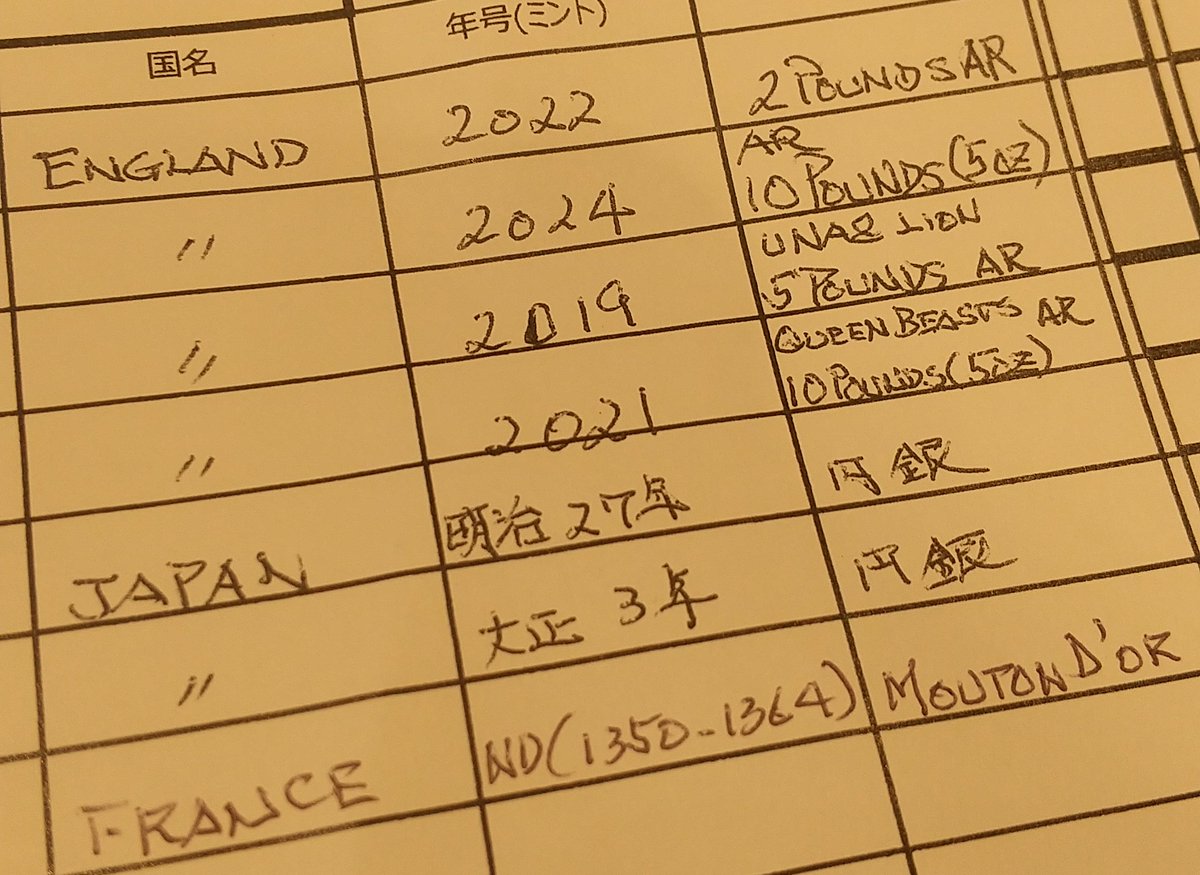 国名 年号(ミント)
ENGLAND 2022 2 POUNDS AR
〃 2024 AR
10 POUNDS (5OZ)
〃 2019 UNA & LION
5 POUNDS AR
〃 2021 QUEEN BEASTS AR
10 POUNDS (5OZ)
JAPAN 明治27年 円銀
〃 大正3年 円銀
FRANCE ND(1350-1364) MOUTON D'OR